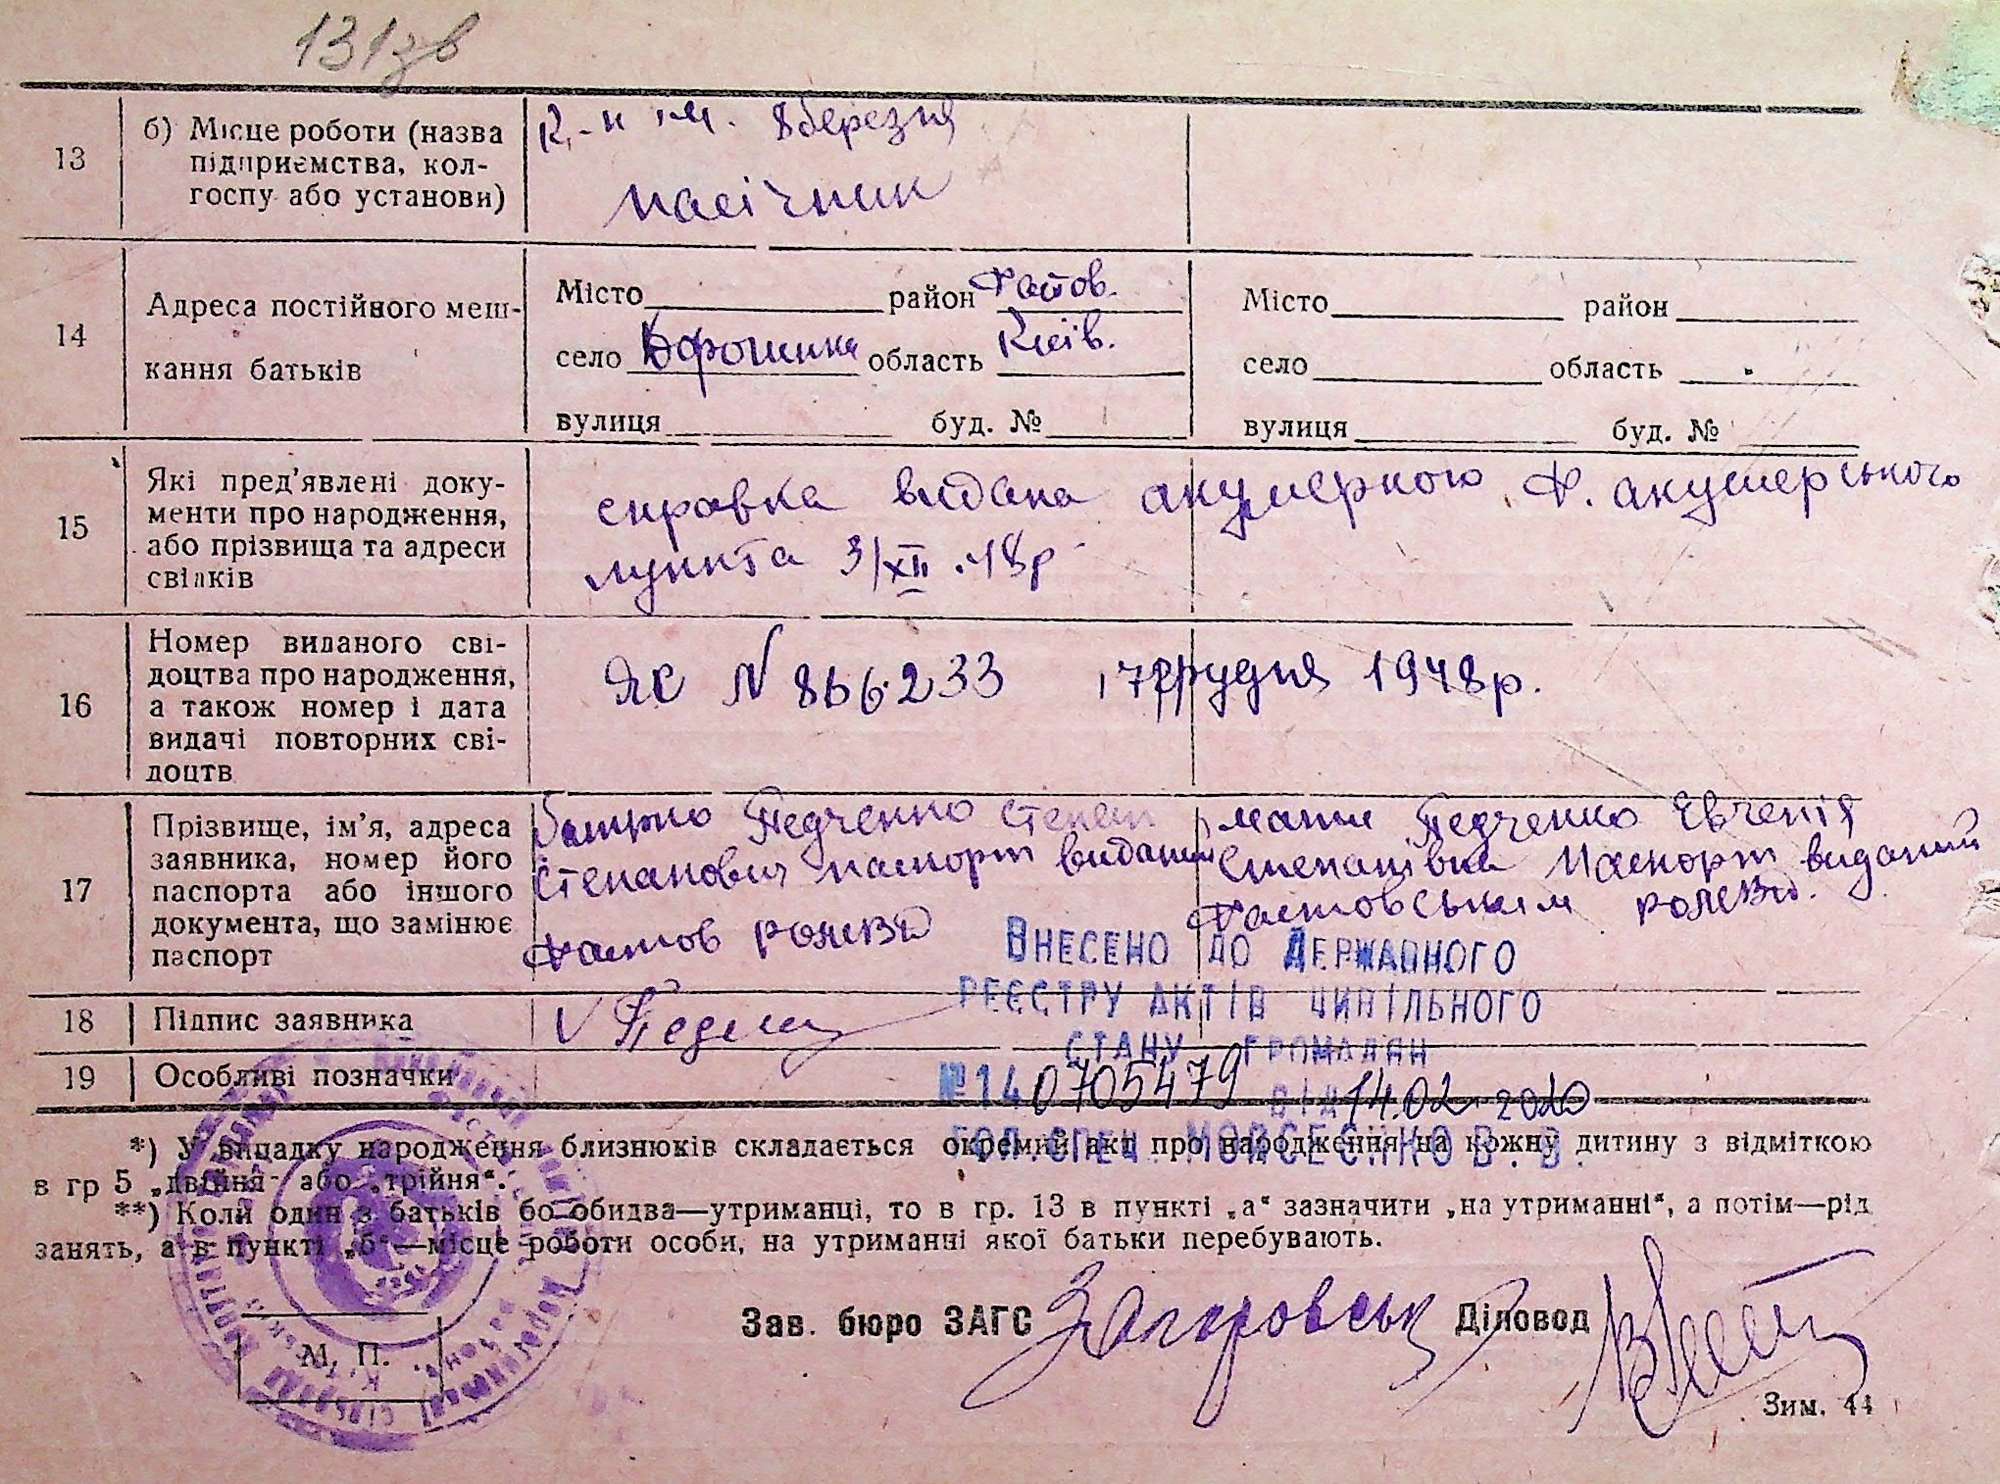 131зв
13
б) Місце роботи (назва
підприємства, кол-
госпу або установи)
К-п ім. 8 березня
пасічник
14
Адреса постійного меш-
кання батьків
Місто район Фастов.
село Дорошинка область Київ.
вулиця буд. №
Місто район
село область
вулиця буд. №
15
Які пред'явлені доку-
менти про народження,
або прізвища та адреси
свідків
справка видана акушеркою Ф. акушерського
пункта 3/XII.48р
16
Номер виданого сві-
доцтва про народження,
а також номер і дата
видачі повторних сві-
доцтв
ЯС N 866233 17 грудня 1948р.
17
Прізвище, ім'я, адреса
заявника, номер його
паспорта або іншого
документа, що замінює
паспорт
батько Педченко Степан
Степанович паспорт виданий
Фастов РОМВД
мати Педченко Євгенія
Степанівна Паспорт виданий
Фастовським РОМВД.
18
Підпис заявника
V
19
Особливі позначки
Внесено до Державного
реєстру актів цивільного
стану громадян
№ 140705479 від 14.02.2020
гол.спец. Мойсеєнко В.В.
*) У випадку народження близнюків складається окремий акт про народження на кожну дитину з відміткою
в гр 5 „двійня" або „трійня".
**) Коли один з батьків бо обидва—утриманці, то в гр. 13 в пункті „а" зазначити „на утриманні", а потім—рід
занять, а в пункті „б"—місце роботи особи, на утриманні якої батьки перебувають.
М. П.
Зав. бюро ЗАГС Діловод
Зим. 44